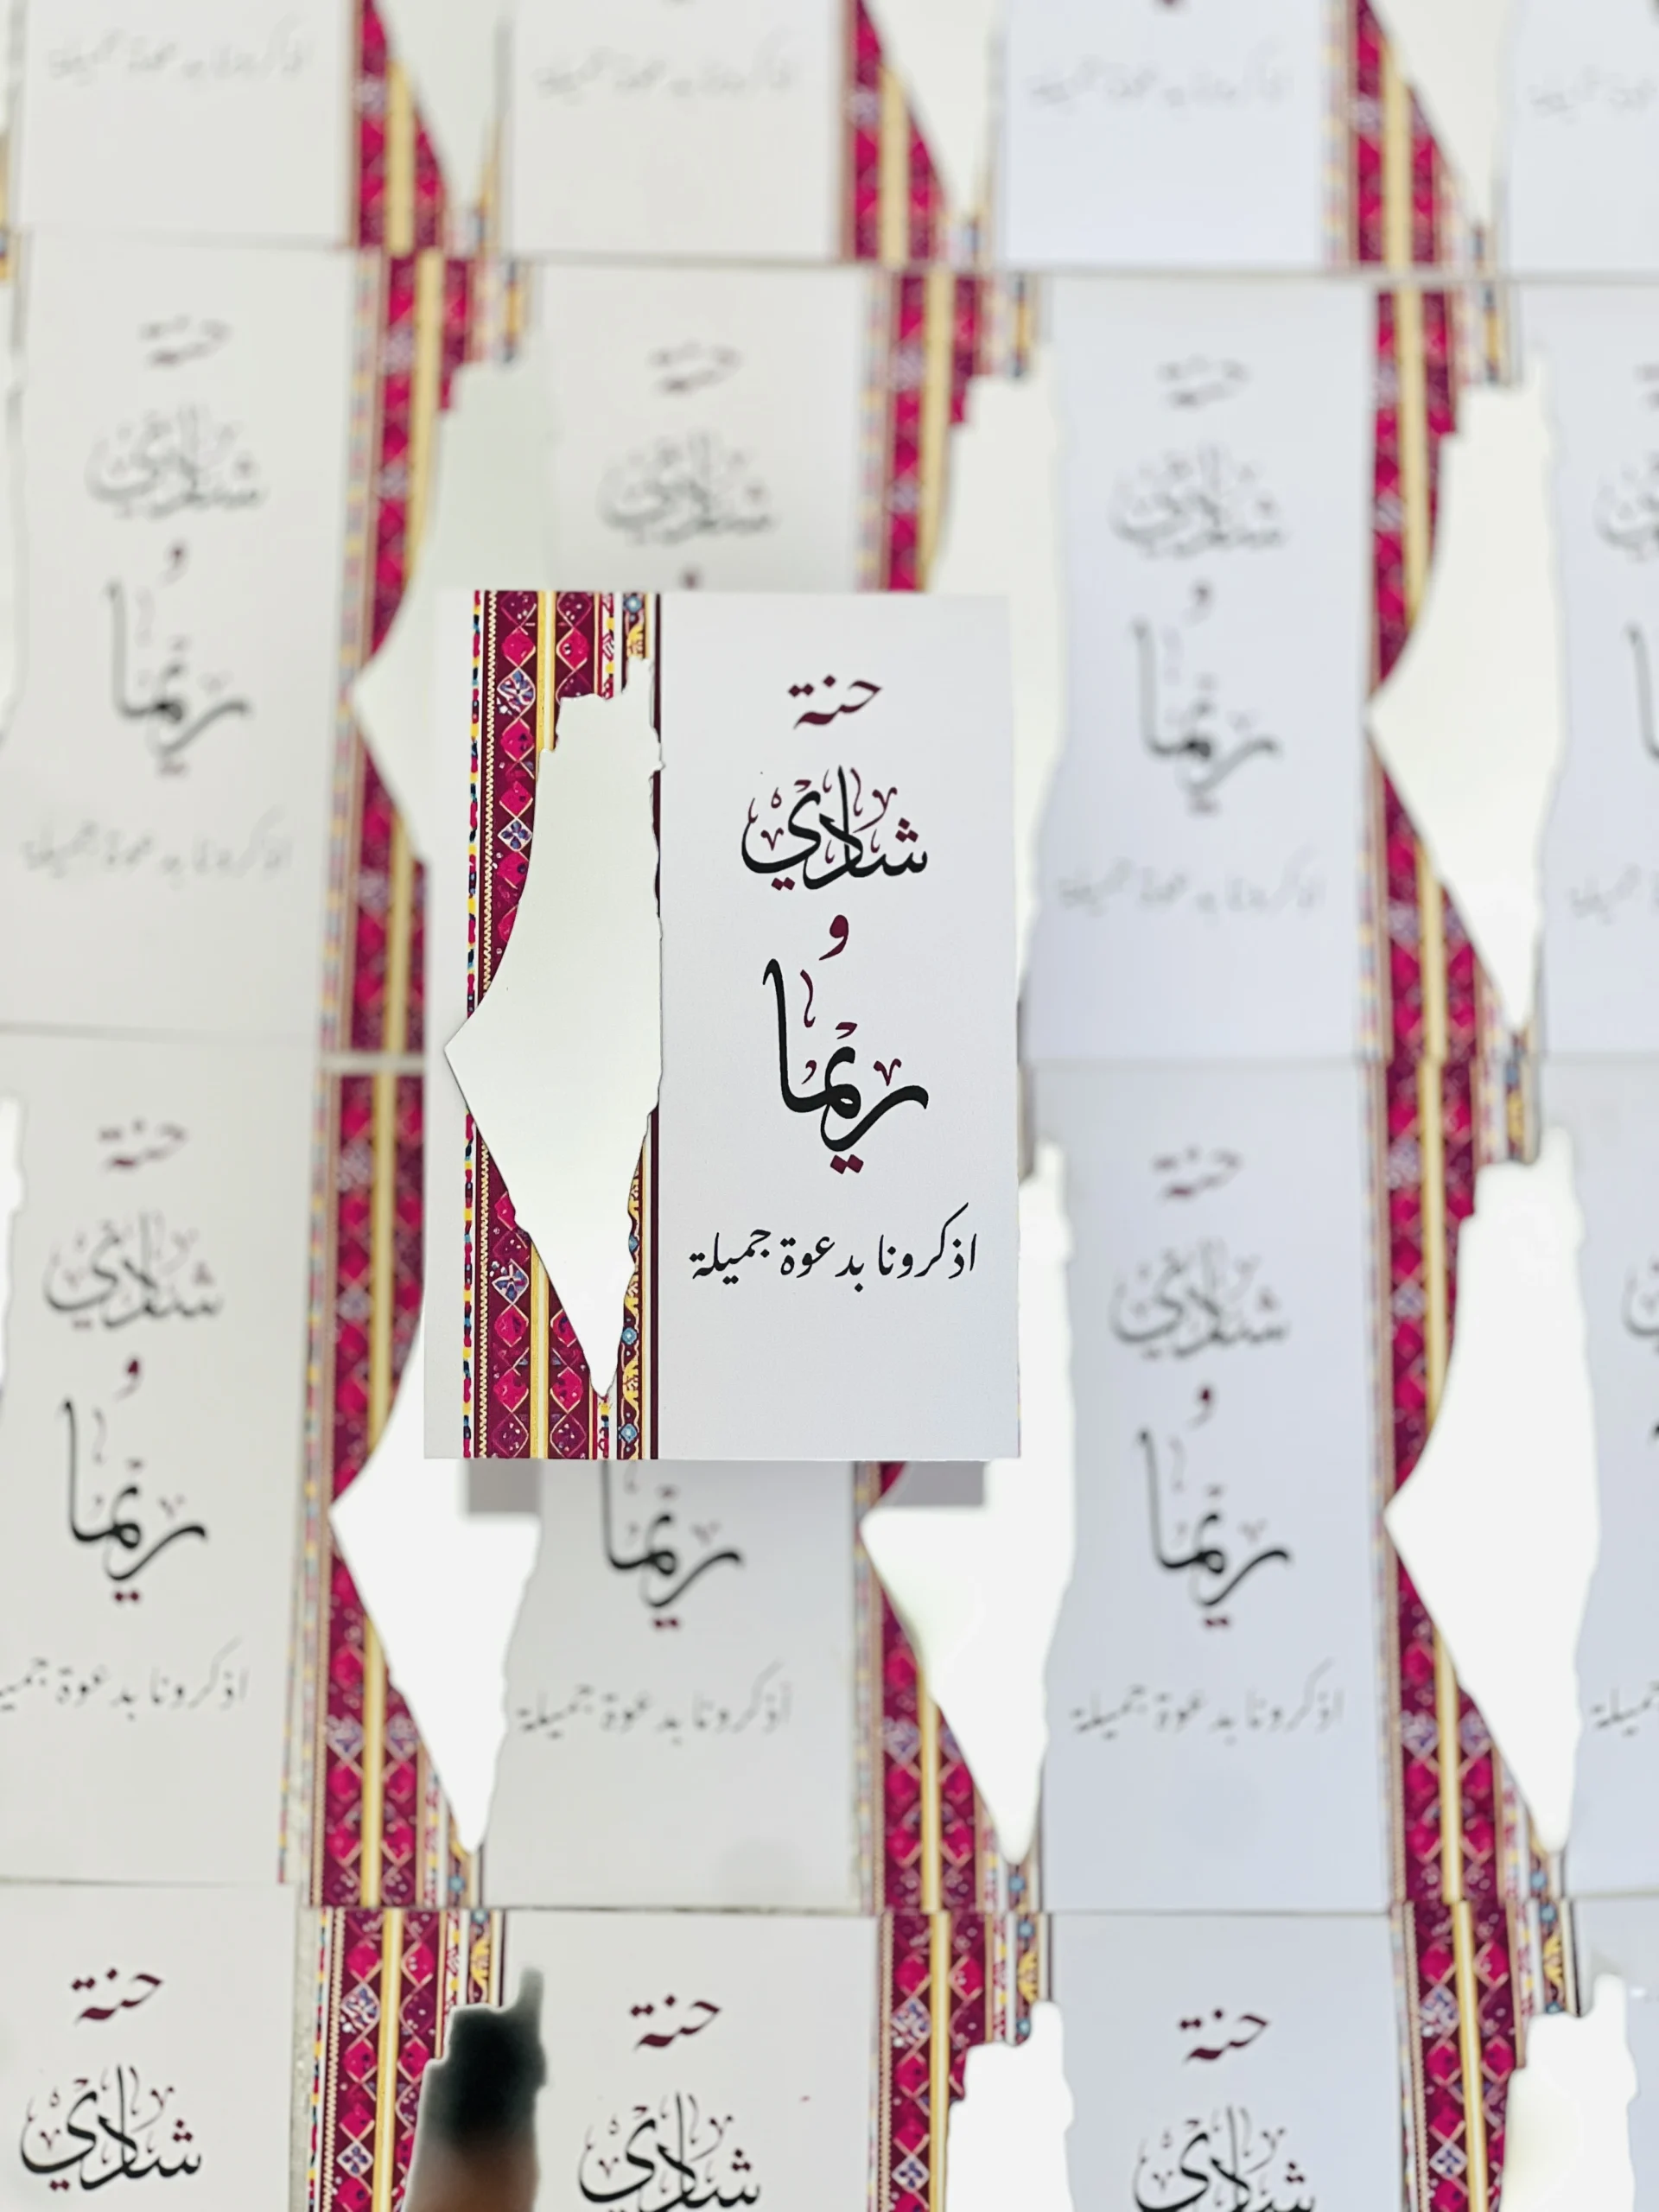 حنة
شادي
و
ريما
اذكرونا بدعوة جميلة